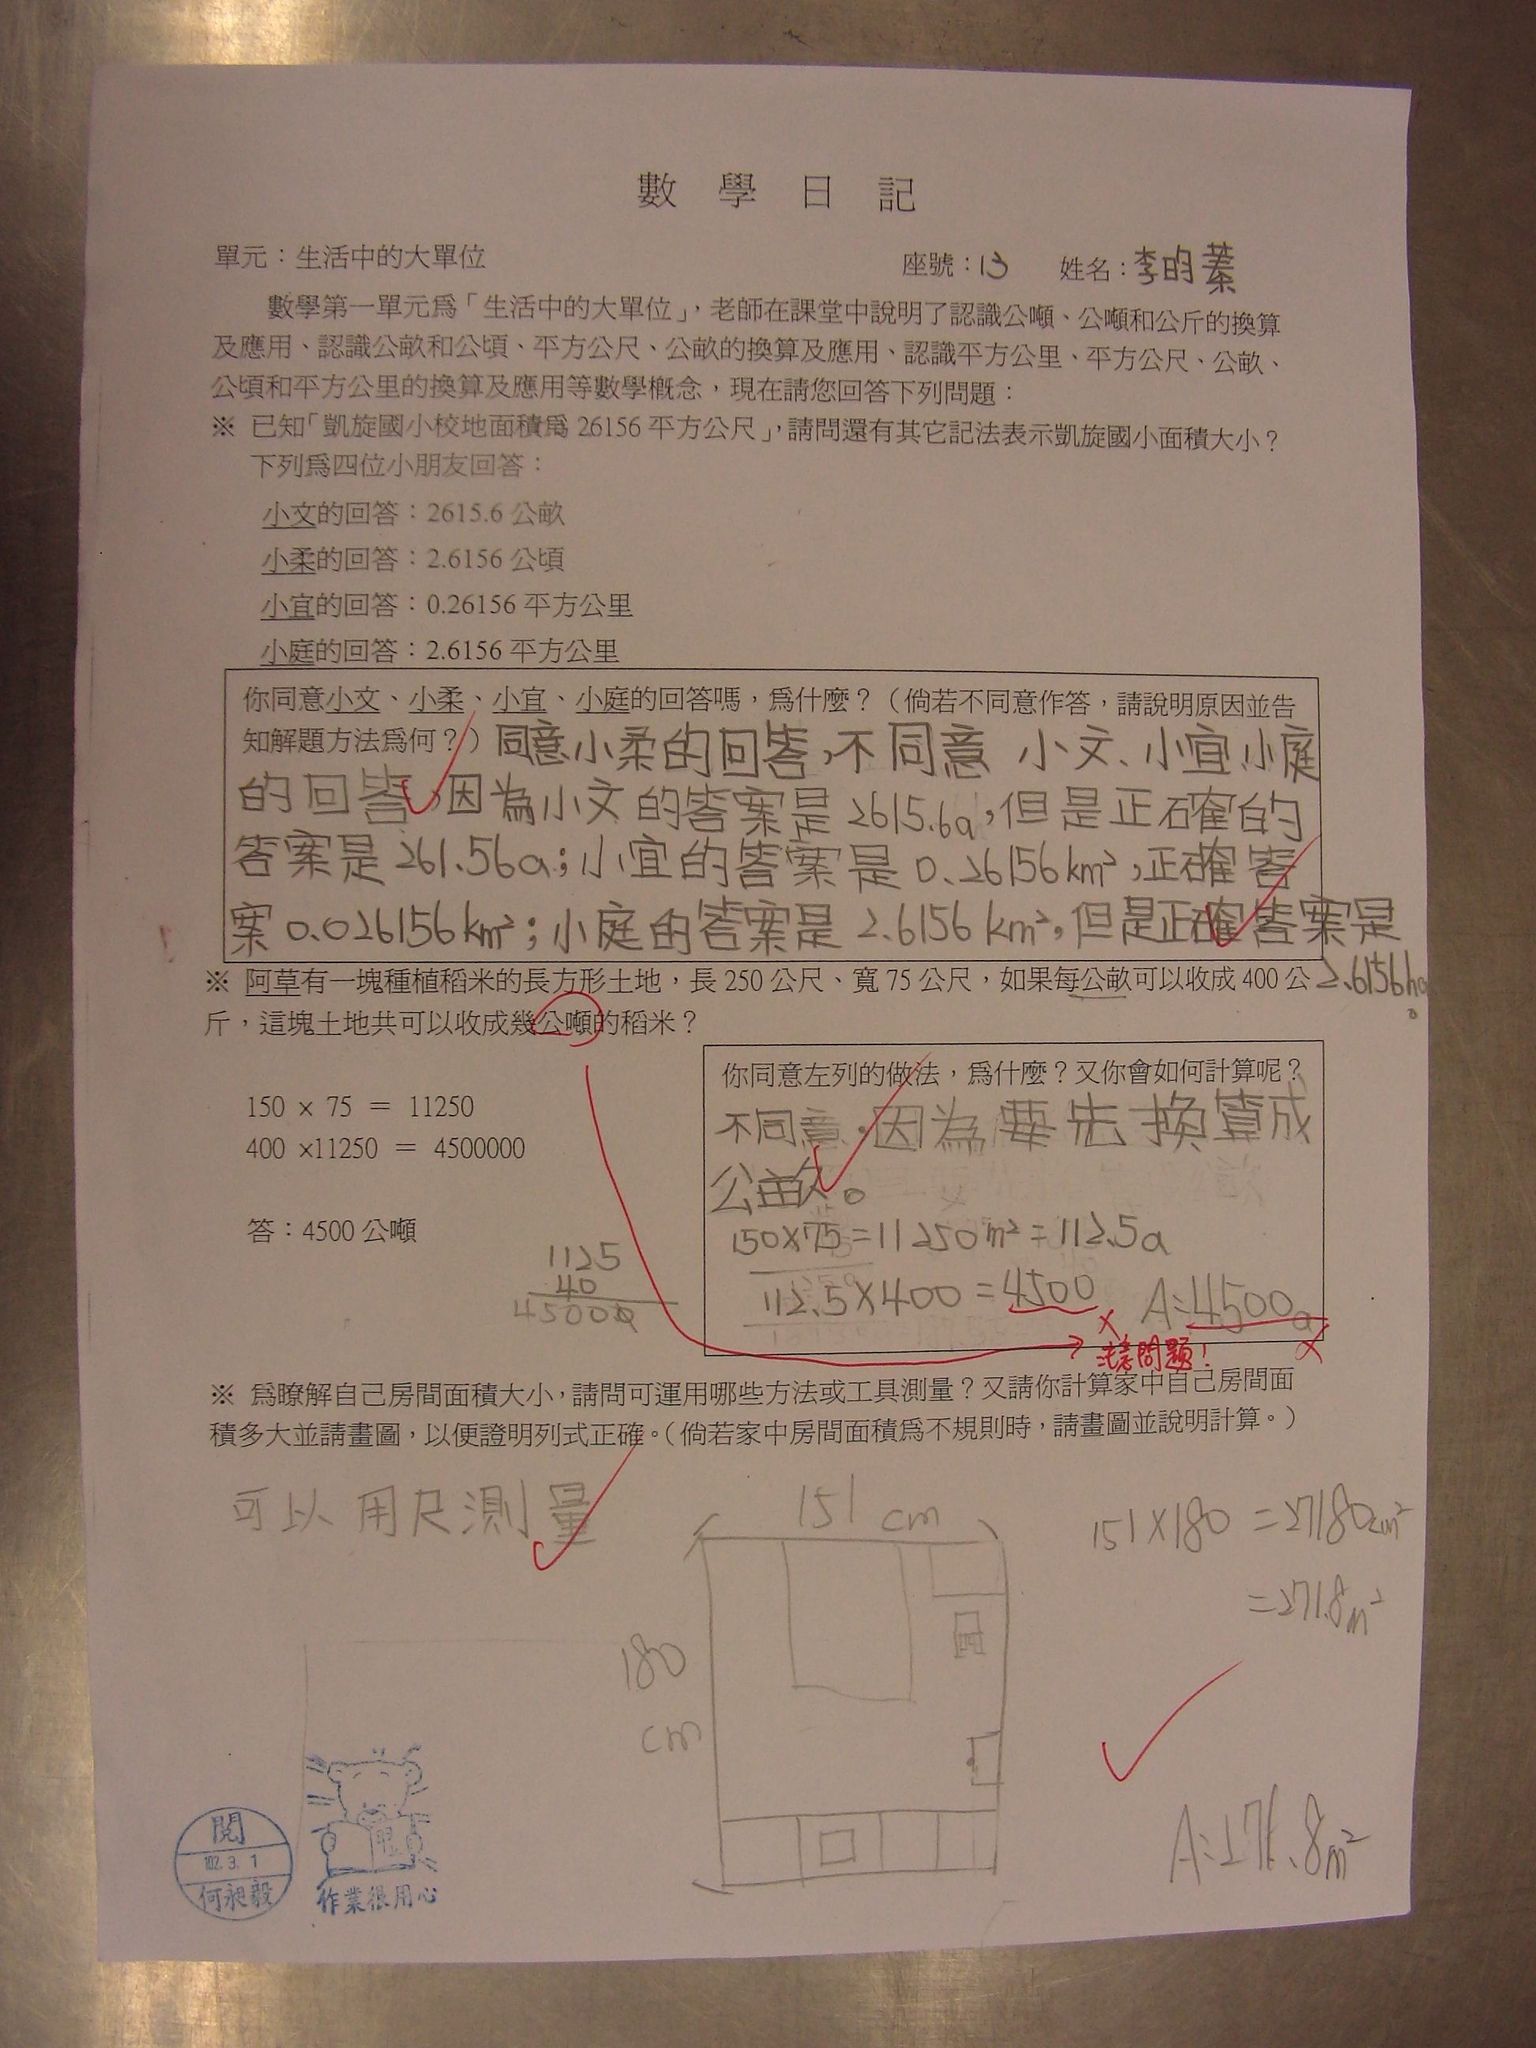 數學日記
單元：生活中的大單位 座號：13 姓名：李昀蓁
數學第一單元為「生活中的大單位」，老師在課堂中說明了認識公噸、公噸和公斤的換算
及應用、認識公畝和公頃、平方公尺、公畝的換算及應用、認識平方公里、平方公尺、公畝、
公頃和平方公里的換算及應用等數學概念，現在請您回答下列問題：
※ 已知「凱旋國小校地面積為26156平方公尺」，請問還有其它記法表示凱旋國小面積大小？
下列為四位小朋友回答：
小文的回答：2615.6公畝
小柔的回答：2.6156公頃
小宜的回答：0.26156平方公里
小庭的回答：2.6156平方公里
你同意小文、小柔、小宜、小庭的回答嗎，為什麼？（倘若不同意作答，請說明原因並告
知解題方法為何？）同意小柔的回答，不同意 小文、小宜、小庭
的回答，因為小文的答案是2615.6a，但是正確的
答案是261.56a；小宜的答案是0.26156km²，正確答
案0.026156km²；小庭的答案是2.6156km²，但是正確答案是
2.6156ha。
※ 阿草有一塊種植稻米的長方形土地，長250公尺、寬75公尺，如果每公畝可以收成400公
斤，這塊土地共可以收成幾公噸的稻米？
150 × 75 ＝ 11250
400 ×11250 ＝ 4500000
答：4500公噸
1125
40
45000
你同意左列的做法，為什麼？又你會如何計算呢？
不同意，因為要先換算成
公畝。
150×75=11250m²=112.5a
112.5×400=4500 A:4500a
注意問題！
※ 為瞭解自己房間面積大小，請問可運用哪些方法或工具測量？又請你計算家中自己房間面
積多大並請畫圖，以便證明列式正確。（倘若家中房間面積為不規則時，請畫圖並說明計算。）
可以用尺測量
151 cm
180
cm
151×180=27180cm²
=271.8m²
A:271.8m²
閱
102.3.1
何昶毅
作業很用心